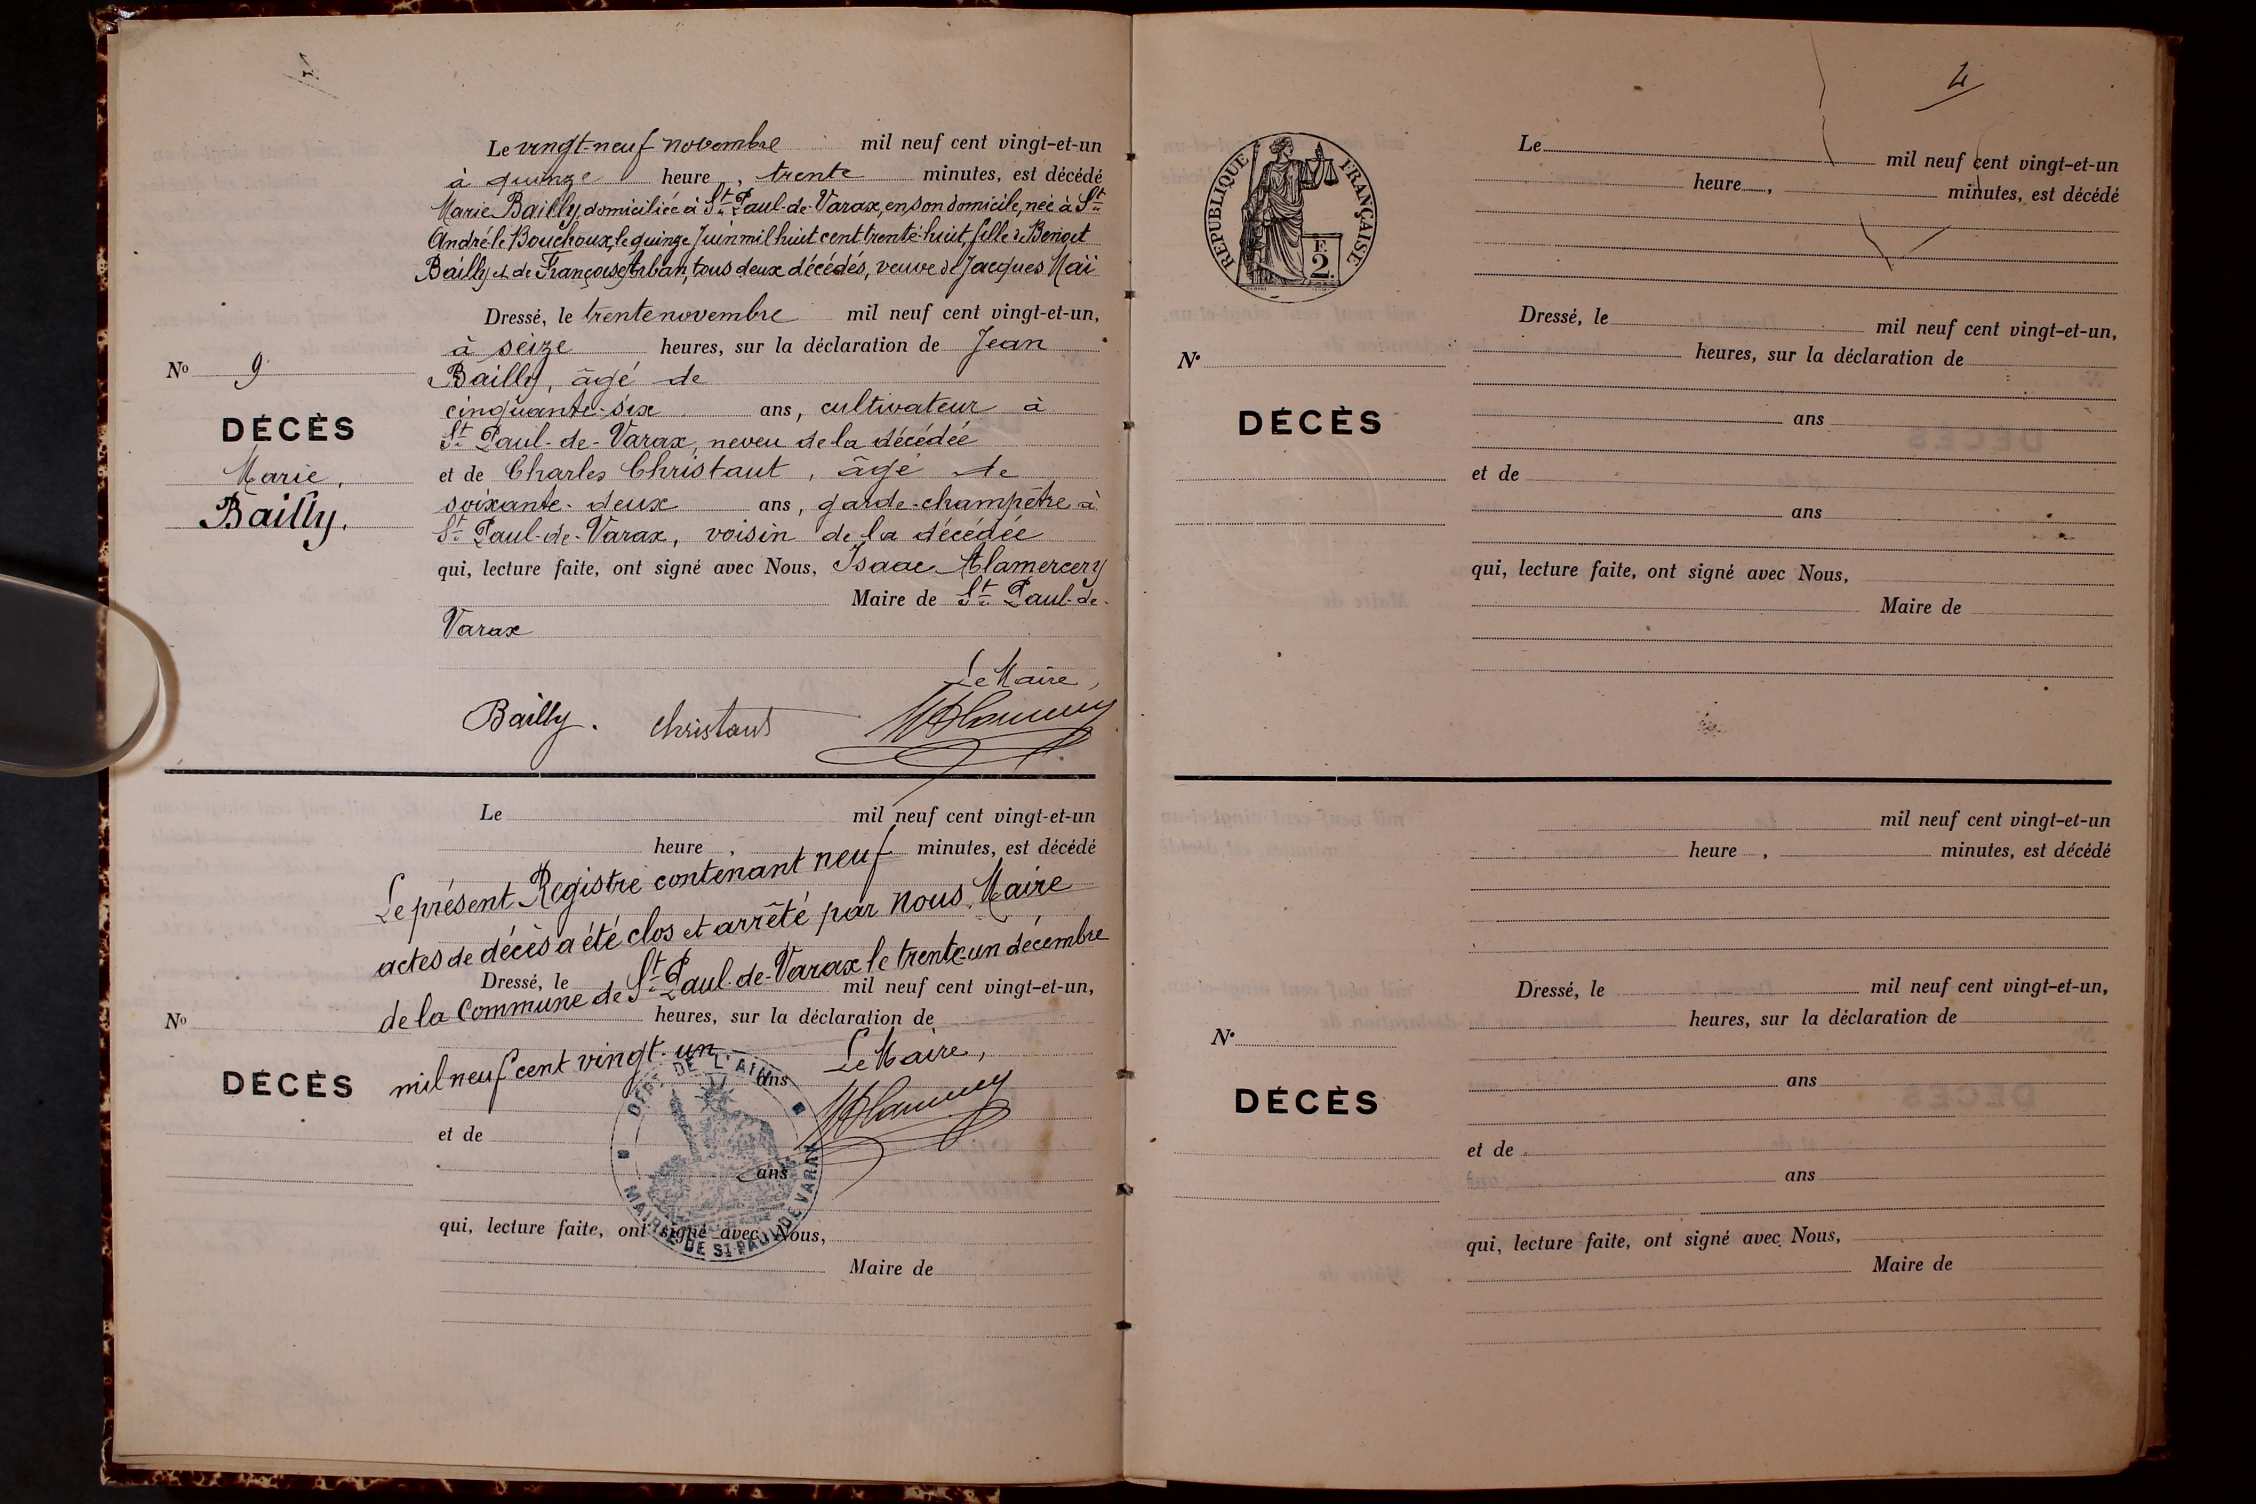 Le vingt-neuf novembre mil neuf cent vingt-et-un
à quinze heure, trente minutes, est décédé
Marie Bailly, domiciliée à St Paul-de-Varax, en son domicile, née à St
André-le Bouchoux, le quinze Juin mil huit cent trente-huit, fille de Benoit
Bailly et de Françoise Arban, tous deux décédés, veuve de Jacques Naï
Dressé, le trente novembre mil neuf cent vingt-et-un,
à seize heures, sur la déclaration de Jean
Bailly, âgé de
cinquante-six ans, cultivateur à
St Paul-de-Varax, neveu de la décédée
et de Charles Christaut, âgé de
soixante-deux ans, garde-champêtre à
St Paul-de-Varax, voisin de la décédée
qui, lecture faite, ont signé avec Nous, Isaac Alamercery
Maire de St Paul-de-
Varax
Le Maire,
Bailly. Christaut
No 9
DÉCÈS
Marie,
Bailly.
Le mil neuf cent vingt-et-un
heure , minutes, est décédé
Le présent Registre contenant neuf
actes de décès a été clos et arrêté par nous, Maire
de la Commune de St Paul-de-Varax le trente-un décembre
mil neuf cent vingt-un
Le Maire,
Dressé, le mil neuf cent vingt-et-un,
heures, sur la déclaration de
ans
et de
ans
qui, lecture faite, ont signé avec Nous,
Maire de
No
DÉCÈS
DÉPT DE L'AIN
MAIRIE DE ST PAUL DE VARAX
4
RÉPUBLIQUE FRANÇAISE
F.
2
Le mil neuf cent vingt-et-un
heure , minutes, est décédé
Dressé, le mil neuf cent vingt-et-un,
heures, sur la déclaration de
ans
et de
ans
qui, lecture faite, ont signé avec Nous,
Maire de
No
DÉCÈS
mil neuf cent vingt-et-un
heure , minutes, est décédé
Dressé, le mil neuf cent vingt-et-un,
heures, sur la déclaration de
ans
et de
ans
qui, lecture faite, ont signé avec Nous,
Maire de
No
DÉCÈS